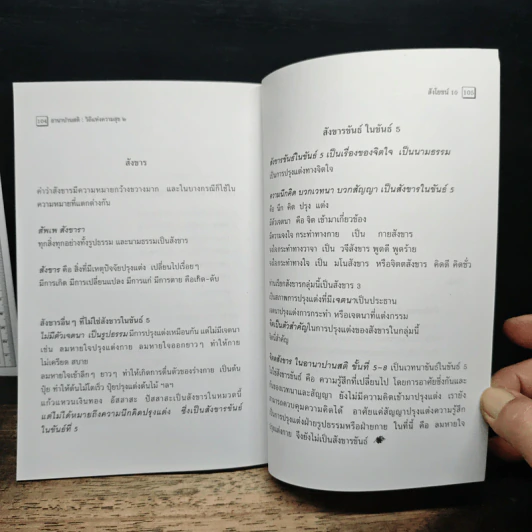 104 อานาปานสติ : วิถีแห่งความสุข ๒
สังขาร
คำว่าสังขารมีความหมายกว้างขวางมาก และในบางกรณีก็ใช้ใน
ความหมายที่แตกต่างกัน
สัพเพ สังขารา
ทุกสิ่งทุกอย่างทั้งรูปธรรม และนามธรรมเป็นสังขาร
สังขาร คือ สิ่งที่มีเหตุปัจจัยปรุงแต่ง เปลี่ยนไปเรื่อยๆ
มีการเกิด มีการเปลี่ยนแปลง มีการแก่ มีการตาย คือเกิด-ดับ
สังขารอื่นๆ ที่ไม่ใช่สังขารในขันธ์ 5
ไม่มีตัวเจตนา เป็นรูปธรรม มีการปรุงแต่งเหมือนกัน แต่ไม่มีเจตนา
เช่น ลมหายใจปรุงแต่งกาย ลมหายใจออกยาวๆ ทำให้กาย
ไม่เครียด สบาย
ลมหายใจเข้าลึกๆ ยาวๆ ทำให้เกิดการตื่นตัวของร่างกาย เป็นต้น
ปุ๋ย ทำให้ต้นไม้โตเร็ว ปุ๋ยปรุงแต่งต้นไม้ ฯลฯ
แก้วแหวนเงินทอง อัสสาสะ ปัสสาสะเป็นสังขารในหมวดนี้
แต่ไม่ได้หมายถึงความนึกคิดปรุงแต่ง ซึ่งเป็นสังขารขันธ์
ในขันธ์ที่ 5
สังโยชน์ 10 105
สังขารขันธ์ ในขันธ์ 5
สังขารขันธ์ในขันธ์ 5 เป็นเรื่องของจิตใจ เป็นนามธรรม
เป็นการปรุงแต่งทางจิตใจ
ความนึกคิด บวกเวทนา บวกสัญญา เป็นสังขารในขันธ์ 5
คือ นึก คิด ปรุง แต่ง
มีตัวเจตนา คือ จิต เข้ามาเกี่ยวข้อง
มีความจงใจ กระทำทางกาย เป็น กายสังขาร
เมื่อกระทำทางวาจา เป็น วจีสังขาร พูดดี พูดร้าย
เมื่อกระทำทางใจ เป็น มโนสังขาร หรือจิตตสังขาร คิดดี คิดชั่ว
ท่านเรียกสังขารกลุ่มนี้เป็นสังขาร 3
เป็นสภาพการปรุงแต่งที่มีเจตนาเป็นประธาน
เจตนาปรุงแต่งการกระทำ หรือเจตนาที่แต่งกรรม
จึงเป็นตัวสำคัญในการปรุงแต่งของสังขารในกลุ่มนี้
จิตสังขาร ในอานาปานสติ ขั้นที่ 5-8 เป็นเวทนาขันธ์ในขันธ์ 5
ไม่ใช่สังขารขันธ์ คือ ความรู้สึกที่เปลี่ยนไป โดยการอาศัยซึ่งกันและ
กันของเวทนาและสัญญา ยังไม่มีความคิดเข้ามาปรุงแต่ง เรายัง
สามารถควบคุมความคิดได้ อาศัยแค่สัญญาปรุงแต่งความรู้สึก
เป็นการปรุงแต่งฝ่ายรูปธรรมหรือฝ่ายกาย ในที่นี้ คือ ลมหายใจ
ปรุงแต่งกาย จึงยังไม่เป็นสังขารขันธ์